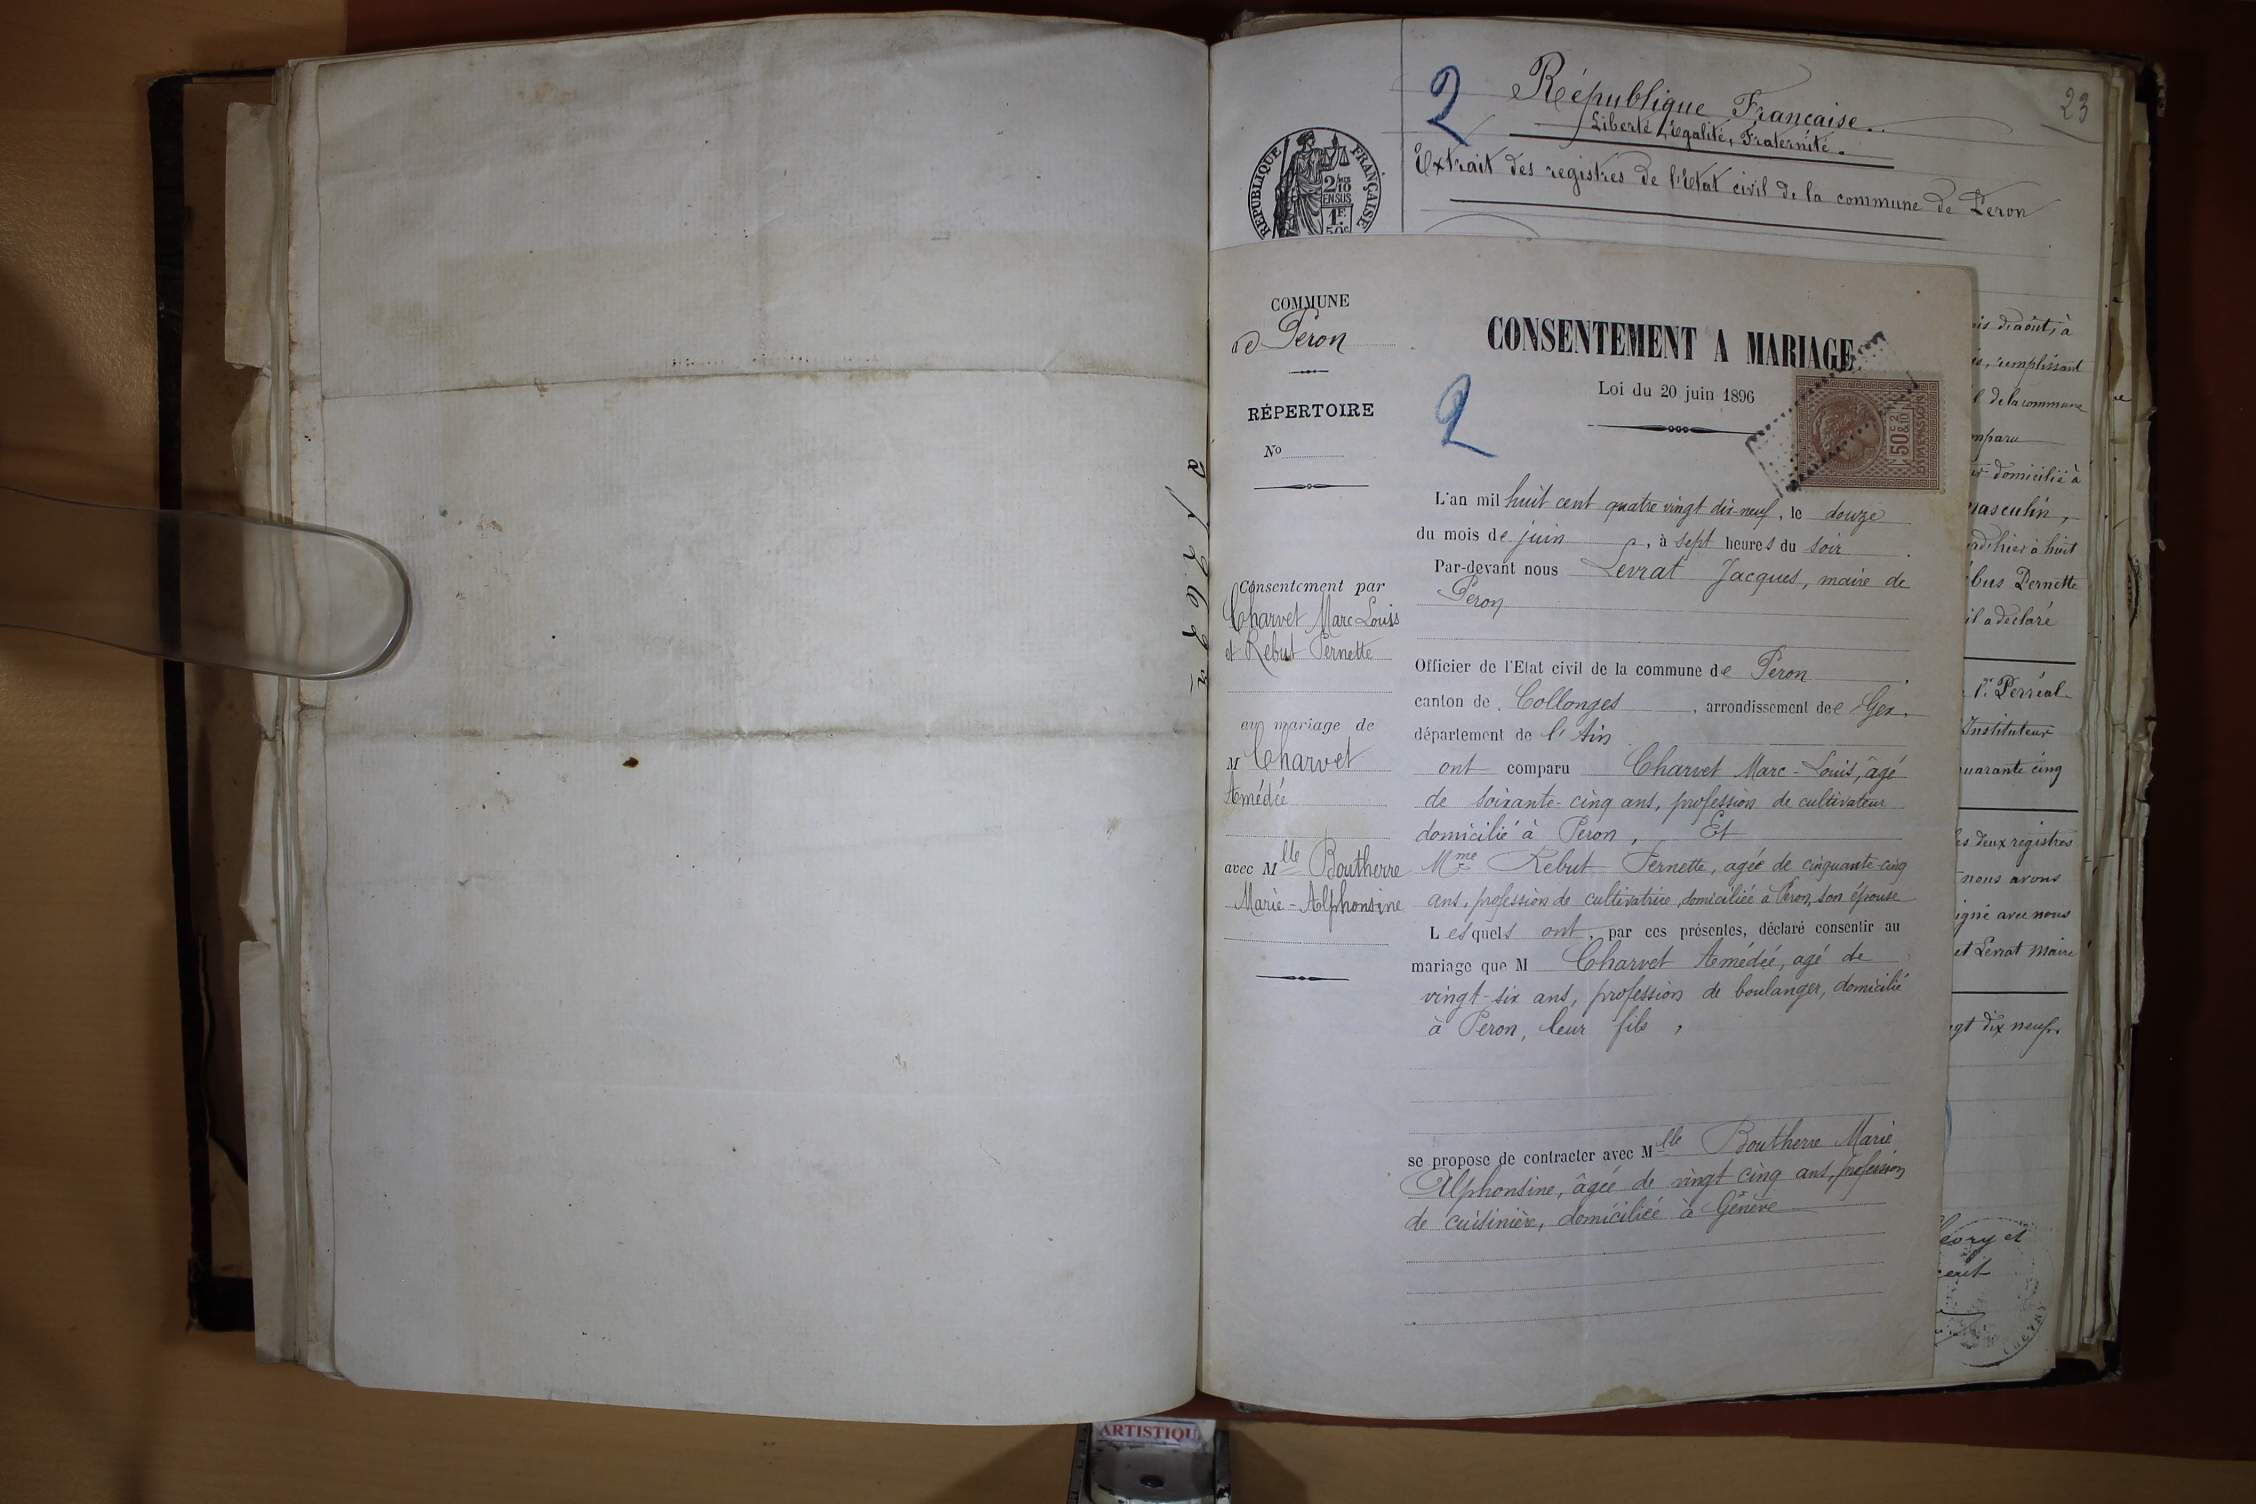 2
République Française.
Liberté, Égalité, Fraternité.
23
Extrait des registres de l'Etat civil de la commune de Peron
RÉPUBLIQUE FRANÇAISE
2/10
EN SUS
1F.
50c
COMMUNE
de Peron
RÉPERTOIRE
No
Consentement par
Charvet Marc Louis
et Rebut Pernette
au mariage de
M Charvet
Amédée
avec Mlle Boutherre
Marie-Alphonsine
CONSENTEMENT A MARIAGE
Loi du 20 juin 1896
2
50c 2/10
DIMENSION
L'an mil huit cent quatre vingt dix-neuf, le douze
du mois de juin, à sept heures du soir.
Par-devant nous Levrat Jacques, maire de
Peron
Officier de l'Etat civil de la commune de Peron.
canton de Collonges, arrondissement de Gex.
département de l'Ain
ont comparu Charvet Marc-Louis, âgé
de soixante-cinq ans, profession de cultivateur
domicilié à Peron, Et
Mme Rebut Pernette, agée de cinquante-cinq
ans, profession de cultivatrice, domiciliée à Peron, son épouse
Lesquels ont, par ces présentes, déclaré consentir au
mariage que M Charvet Amédée, agé de
vingt-six ans, profession de boulanger, domicilié
à Peron, leur fils,
se propose de contracter avec Mlle Boutherre Marie
Alphonsine, âgée de vingt cinq ans, profession
de cuisinière, domiciliée à Genève
d'août, à
remplissant
de la commune
domicilié à
masculin,
hier à huit
Pernette
il a déclaré
Perréal
Instituteur
quarante cinq
deux registres
nous avons
signé avec nous
et Levrat Maire
dix neuf.
et
ARTISTIQU